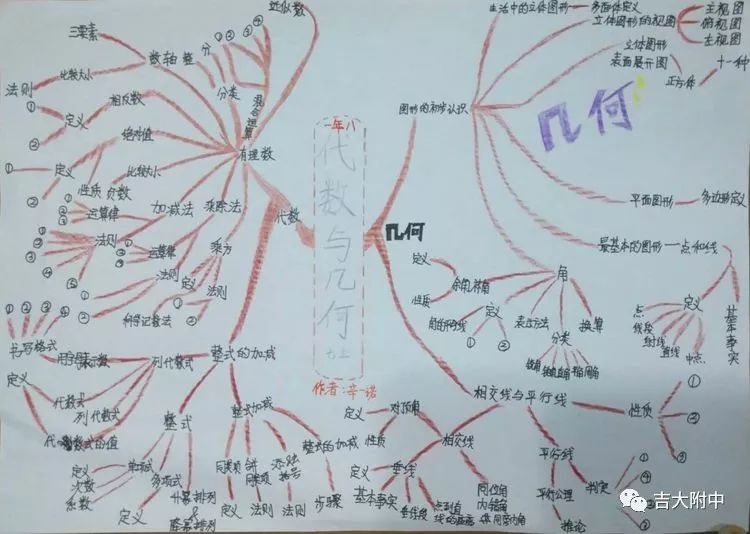 一年八
代数与几何
七上
作者:辛一诺
代数
有理数
近似数
混合运算
分类
数轴
三要素
比较大小
法则
相反数
定义
①
②
绝对值
定义
①
②
性质
比较大小
加减法
运算律
法则
乘除法
运算律
法则
①
②
乘方
定义
法则
科学记数法
整式的加减
列代数式
书写格式
①
②
③
④
代数式
定义
列代数式
整式
单项式
定义
次数
系数
多项式
定义
升幂排列
&
降幂排列
整式加减
同类项
定义
合并
同类项
法则
添/去
括号
法则
整式的加减
步骤
几何
图形的初步认识
生活中的立体图形
多面体定义
立体图形的视图
主视图
俯视图
左视图
立体图形
表面展开图
正方体
十一种
平面图形
多边形定义
最基本的图形
点和线
定义
点
线段
射线
直线
中点
基本事实
角
余角补角
定义
性质
角的平分线
定义
①
②
表示方法
分类
换算
相交线与平行线
相交线
对顶角
定义
性质
垂线
定义
基本事实
垂线段
点到直
线的距离
同位角
内错角
同旁内角
平行线
平行公理
推论
判定
①
②
性质
①
②
③
几何
吉大附中